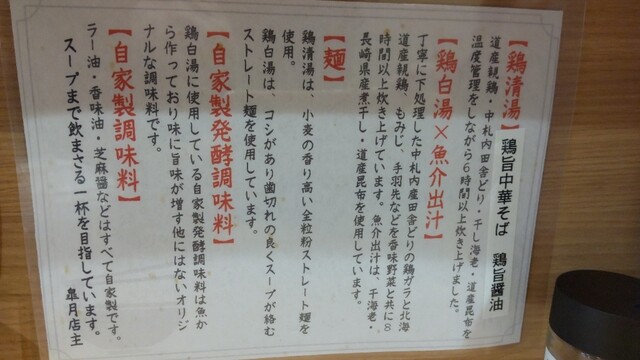 【鶏清湯】鶏旨中華そば 鶏旨醤油
道産親鶏・中札内田舎どり・干し海老・道産昆布を
温度管理をしながら6時間以上炊き上げました。
【鶏白湯×魚介出汁】
丁寧に下処理した中札内産田舎どりの鶏ガラと北海
道産親鶏、もみじ、手羽先などを香味野菜と共に8
時間以上炊き上げています。魚介出汁は、干海老・
長崎県産煮干し・道産昆布を使用しています。
【麺】
鶏清湯は、小麦の香り高い全粒粉ストレート麺を
使用。
鶏白湯は、コシがあり歯切れの良くスープが絡む
ストレート麺を使用しています。
【自家製発酵調味料】
鶏白湯に使用している自家製発酵調味料は魚か
ら作っており味に旨味が増す他にはないオリジ
ナルな調味料です。
【自家製調味料】
ラー油・香味油・芝麻醤などはすべて自家製です。
スープまで飲まさる一杯を目指しています。 皐月店主